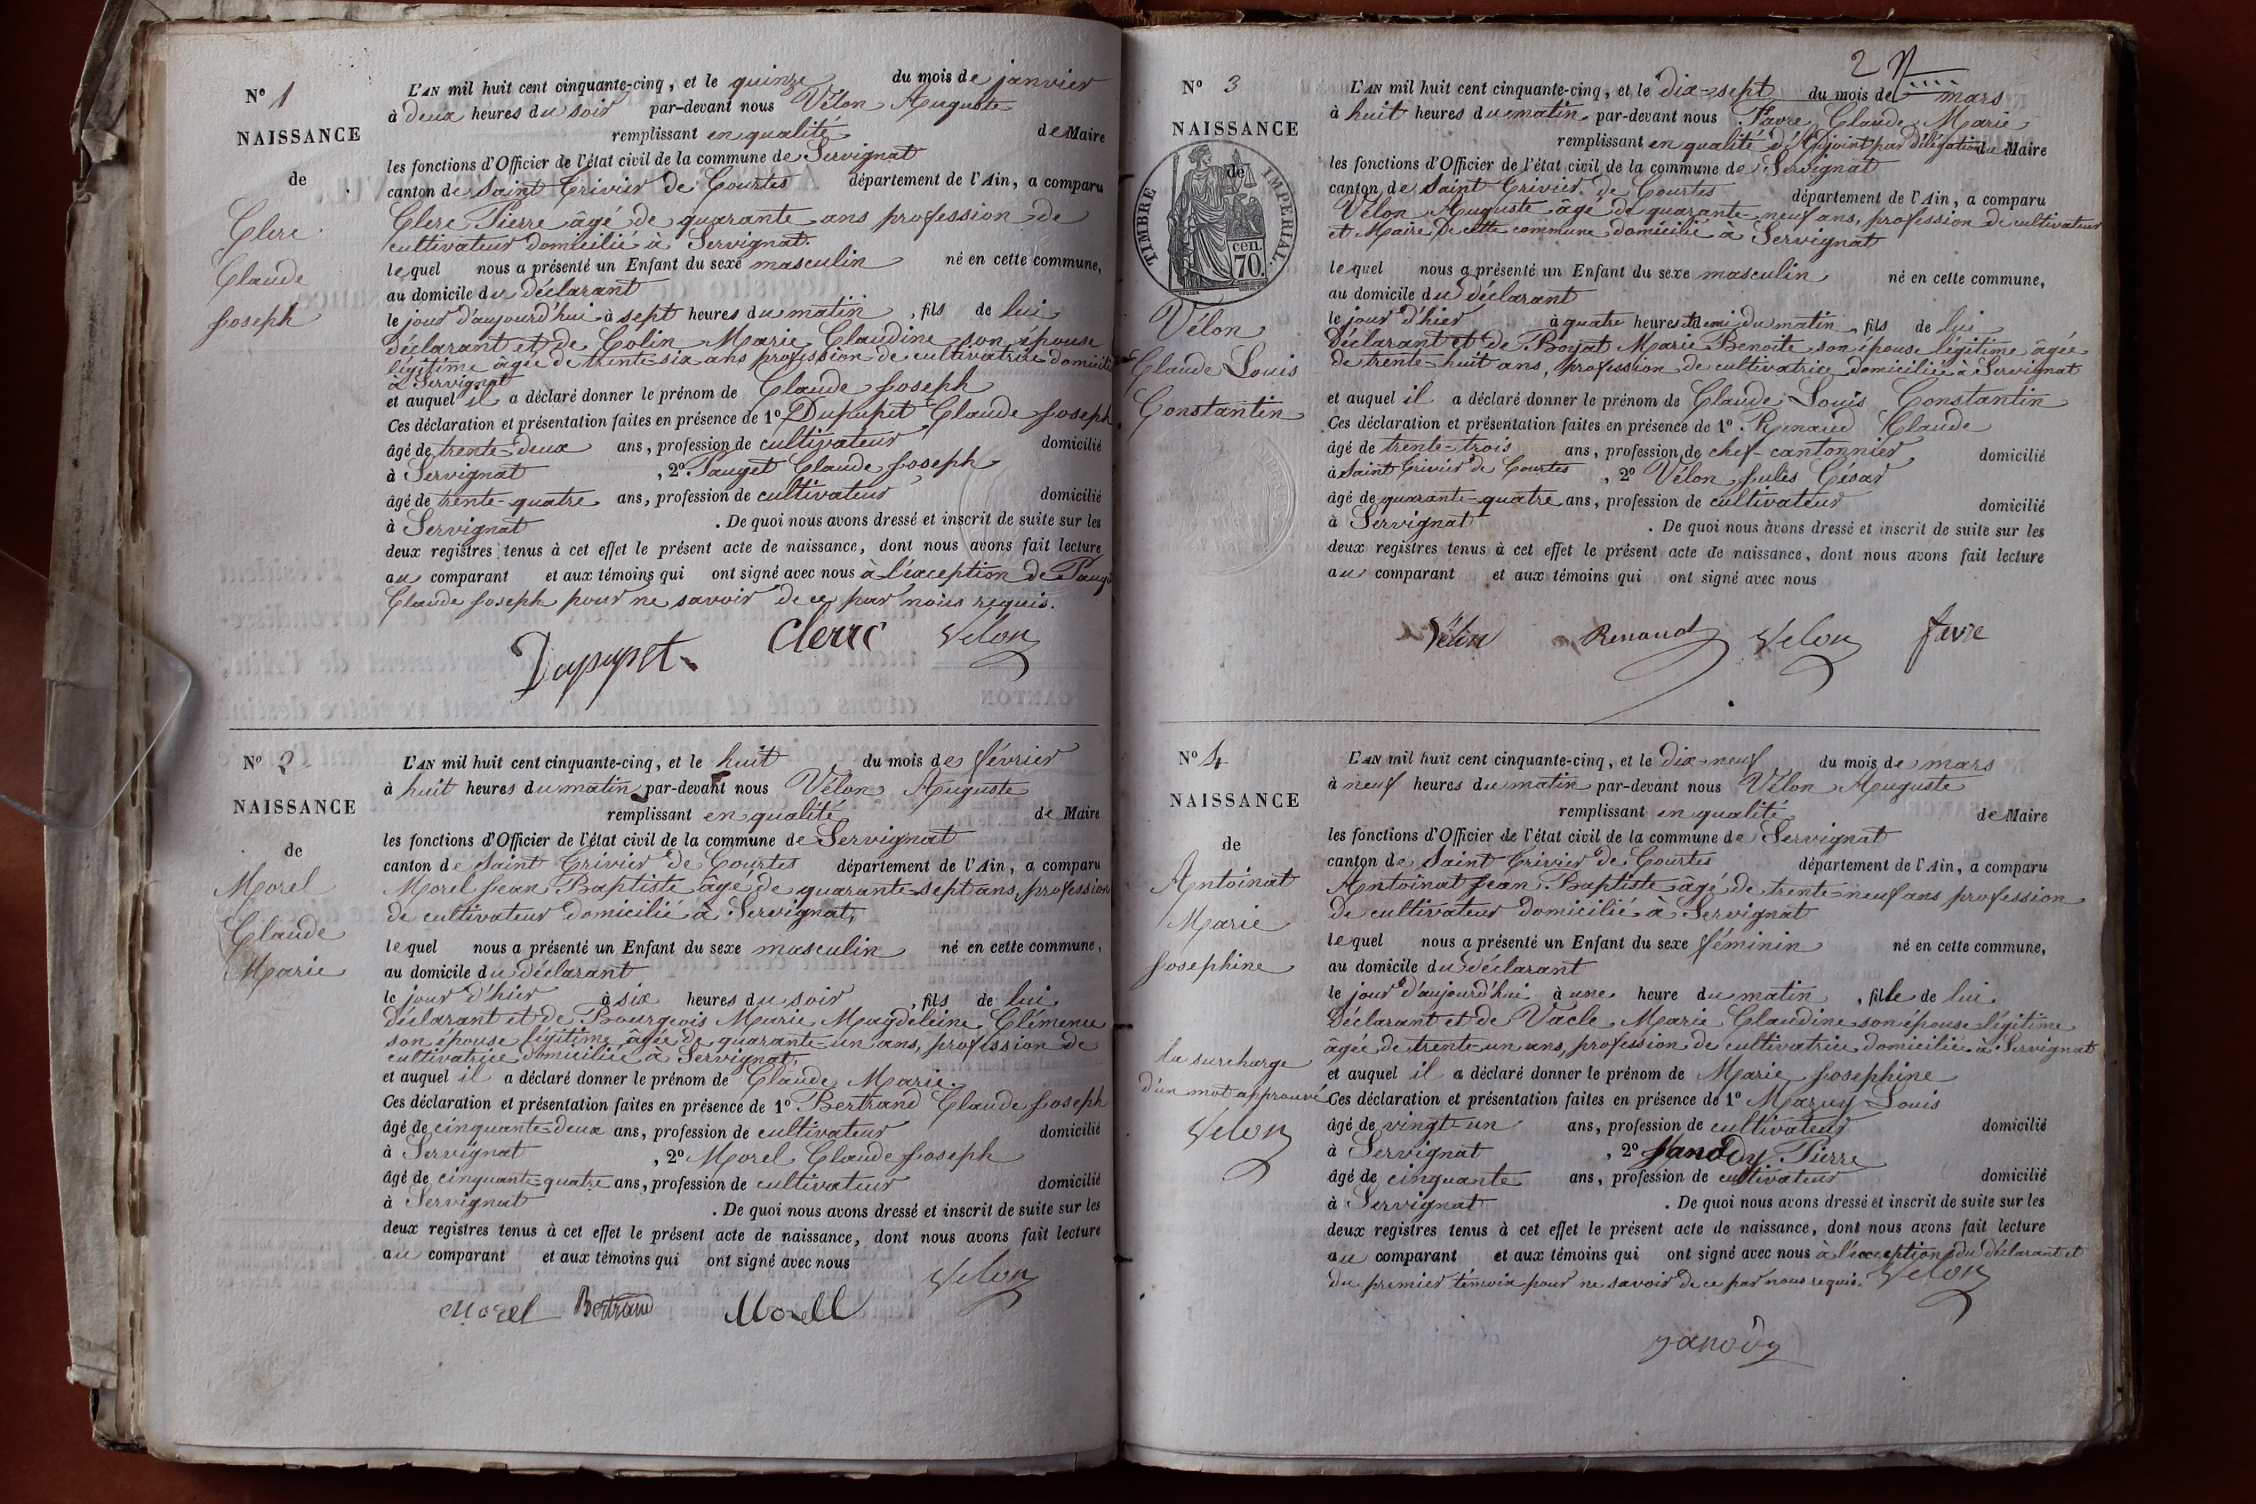 N° 1
NAISSANCE
de
Clerc
Claude
Joseph
L'AN mil huit cent cinquante-cinq, et le quinze du mois de janvier
à deux heures du soir par-devant nous Vélon Auguste
remplissant en qualité de Maire
les fonctions d'Officier de l'état civil de la commune de Servignat
canton de Saint Trivier de Courtes département de l'Ain, a comparu
Clerc Pierre âgé de quarante ans profession de
cultivateur domicilié à Servignat.
lequel nous a présenté un Enfant du sexe masculin né en cette commune,
au domicile du déclarant
le jour d'aujourd'hui à sept heures du matin, fils de lui
déclarant et de Colin Marie Claudine son épouse
légitime âgée de trente-six ans profession de cultivatrice domicilié
à Servignat
et auquel il a déclaré donner le prénom de Claude Joseph
Ces déclaration et présentation faites en présence de 1° Dupupet Claude Joseph
âgé de trente-deux ans, profession de cultivateur domicilié
à Servignat, 2° Pauget Claude Joseph
âgé de trente-quatre ans, profession de cultivateur domicilié
à Servignat. De quoi nous avons dressé et inscrit de suite sur les
deux registres tenus à cet effet le présent acte de naissance, dont nous avons fait lecture
au comparant et aux témoins qui ont signé avec nous à l'exception de Paug
Claude Joseph pour ne savoir de ce par nous requis.
Dupupet Clerc Vélon
N° 2
NAISSANCE
de
Morel
Claude
Marie
L'AN mil huit cent cinquante-cinq, et le huit du mois de février
à huit heures du matin par-devant nous Vélon Auguste
remplissant en qualité de Maire
les fonctions d'Officier de l'état civil de la commune de Servignat
canton de Saint Trivier de Courtes département de l'Ain, a comparu
Morel Jean Baptiste âgé de quarante-sept ans, profession
de cultivateur domicilié à Servignat,
lequel nous a présenté un Enfant du sexe masculin né en cette commune,
au domicile du déclarant
le jour d'hier à six heures du soir, fils de lui
déclarant et de Bourgeois Marie Magdeleine Clémence
son épouse légitime âgée de quarante-un ans, profession de
cultivatrice domiciliée à Servignat,
et auquel il a déclaré donner le prénom de Claude Marie.
Ces déclaration et présentation faites en présence de 1° Bertrand Claude Joseph
âgé de cinquante-deux ans, profession de cultivateur domicilié
à Servignat, 2° Morel Claude Joseph
âgé de cinquante-quatre ans, profession de cultivateur domicilié
à Servignat. De quoi nous avons dressé et inscrit de suite sur les
deux registres tenus à cet effet le présent acte de naissance, dont nous avons fait lecture
au comparant et aux témoins qui ont signé avec nous
Vélon
Morel Bertrand Morell
2
N° 3
NAISSANCE
de
TIMBRE IMPERIAL
70 cen.
Vélon
Claude Louis
Constantin
L'AN mil huit cent cinquante-cinq, et le dix-sept du mois de mars
à huit heures du matin par-devant nous Favre Claude Marie
remplissant en qualité d'Adjoint par délégation du Maire
les fonctions d'Officier de l'état civil de la commune de Servignat
canton de Saint Trivier de Courtes département de l'Ain, a comparu
Vélon Auguste âgé de quarante-neuf ans, profession de cultivateur
et Maire de cette commune domicilié à Servignat
lequel nous a présenté un Enfant du sexe masculin né en cette commune,
au domicile du déclarant
le jour d'hier à quatre heures et demi du matin, fils de lui
déclarant et de Boyat Marie Benoite son épouse légitime âgée
de trente-huit ans, profession de cultivatrice domiciliée à Servignat
et auquel il a déclaré donner le prénom de Claude Louis Constantin
Ces déclaration et présentation faites en présence de 1° Renaud Claude
âgé de trente-trois ans, profession de chef-cantonnier domicilié
à Saint Trivier de Courtes, 2° Vélon Jules César
âgé de quarante-quatre ans, profession de cultivateur domicilié
à Servignat. De quoi nous avons dressé et inscrit de suite sur les
deux registres tenus à cet effet le présent acte de naissance, dont nous avons fait lecture
au comparant et aux témoins qui ont signé avec nous
Vélon Renaud Vélon favre
N° 4
NAISSANCE
de
Antoinat
Marie
Josephine
la surcharge
d'un mot approuvé
Vélon
L'AN mil huit cent cinquante-cinq, et le dix-neuf du mois de mars
à neuf heures du matin par-devant nous Vélon Auguste
remplissant en qualité de Maire
les fonctions d'Officier de l'état civil de la commune de Servignat
canton de Saint Trivier de Courtes département de l'Ain, a comparu
Antoinat Jean Baptiste âgé de trente-neuf ans profession
de cultivateur domicilié à Servignat
lequel nous a présenté un Enfant du sexe féminin né en cette commune,
au domicile du déclarant
le jour d'aujourd'hui à une heure du matin, fille de lui
déclarant et de Vacle Marie Claudine son épouse légitime
âgée de trente-un ans, profession de cultivatrice domiciliée à Servignat
et auquel il a déclaré donner le prénom de Marie Josephine
Ces déclaration et présentation faites en présence de 1° Mazuy Louis
âgé de vingt-un ans, profession de cultivateur domicilié
à Servignat, 2° Janody Pierre
âgé de cinquante ans, profession de cultivateur domicilié
à Servignat. De quoi nous avons dressé et inscrit de suite sur les
deux registres tenus à cet effet le présent acte de naissance, dont nous avons fait lecture
au comparant et aux témoins qui ont signé avec nous à l'exception du déclarant et
du premier témoin pour ne savoir de ce par nous requis. Vélon
Janody